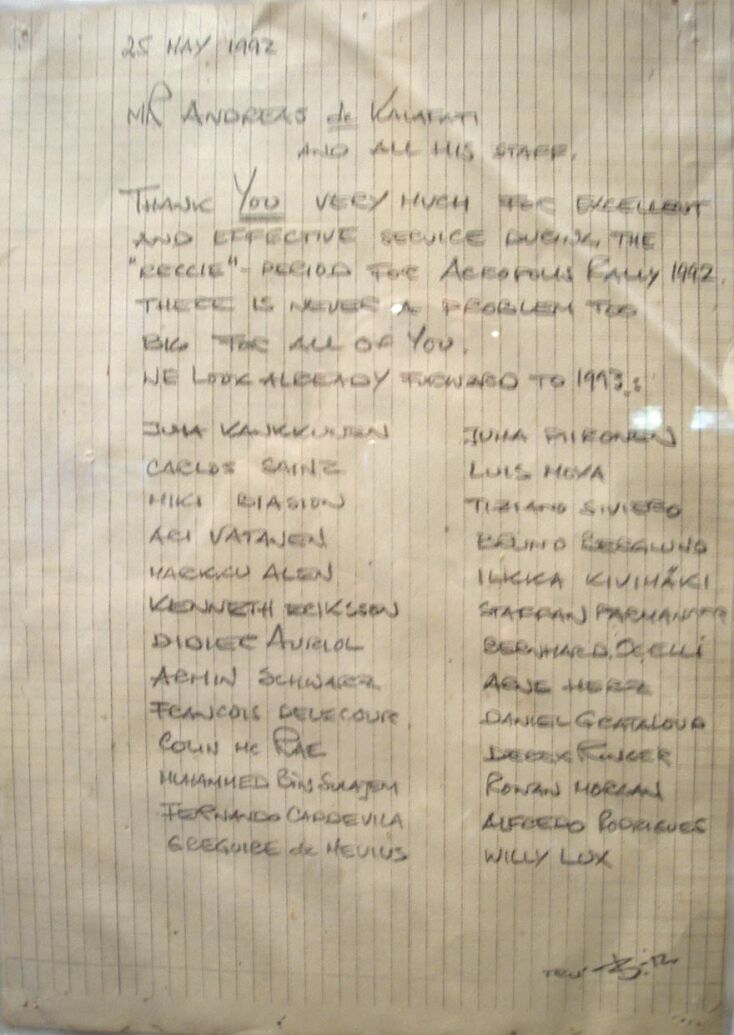 25 MAY 1992
MR ANDREAS de KALAFATI
AND ALL HIS STAFF.
THANK YOU VERY MUCH FOR EXCELLENT
AND EFFECTIVE SERVICE DURING THE
"RECCIE"-PERIOD FOR ACROPOLIS RALLY 1992.
THERE IS NEVER A PROBLEM TOO
BIG FOR ALL OF YOU.
WE LOOK ALREADY FORWARD TO 1993:
JUHA KANKKUNEN JUHA PIIRONEN
CARLOS SAINZ LUIS MOYA
MIKI BIASION TIZIANO SIVIERO
ARI VATANEN BRUNO BERGLUND
MARKKU ALEN ILKKA KIVIMÄKI
KENNETH ERIKSSON STAFFAN PARMANDER
DIDIER AURIOL BERNHARD OCELLI
ARMIN SCHWARZ ARNE HERTZ
FRANCOIS DELECOUR DANIEL GRATALOUP
COLIN Mc RAE DEREK RINGER
MUHAMMED BIN SULAYEM RONAN MORGAN
FERNANDO CAPDEVILA ALFREDO RODRIGUES
GREGOIRE de MEVIUS WILLY LUX